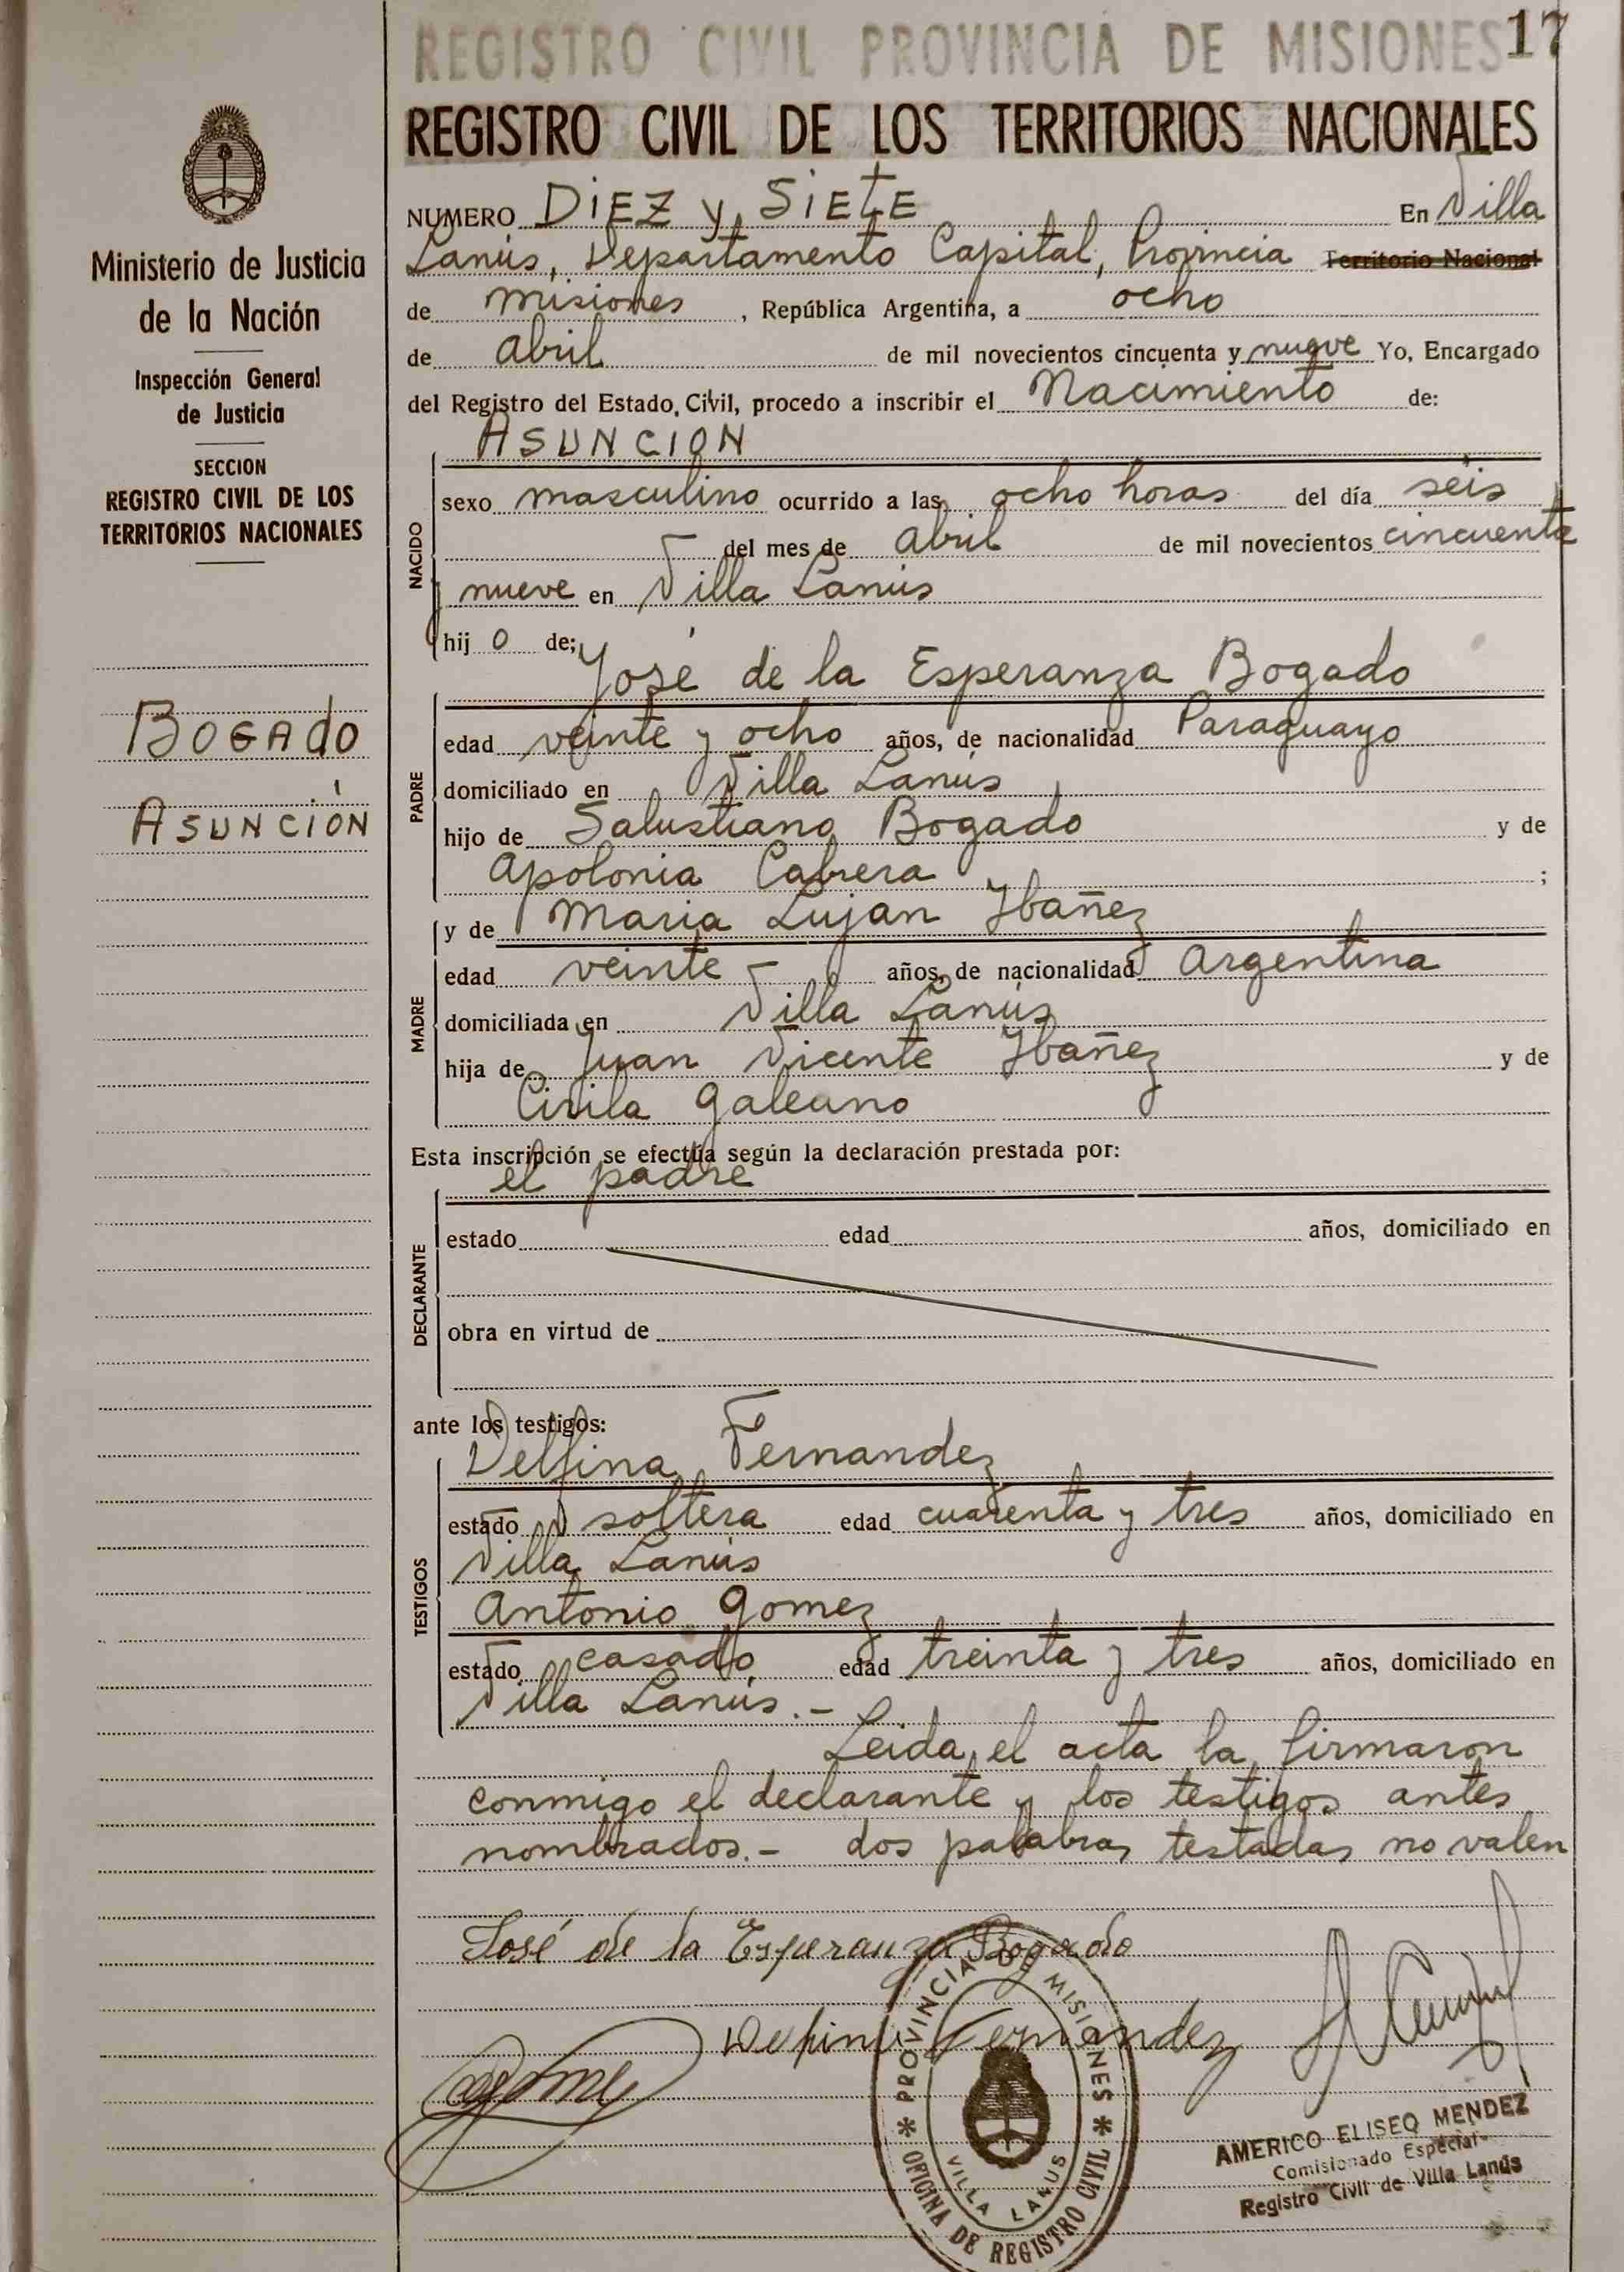 REGISTRO CIVIL PROVINCIA DE MISIONES 17
REGISTRO CIVIL DE LOS TERRITORIOS NACIONALES
Ministerio de Justicia
de la Nación
Inspección General
de Justicia
SECCION
REGISTRO CIVIL DE LOS
TERRITORIOS NACIONALES
BOGADO
ASUNCIÓN
NUMERO DIEZ y SIETE En Villa
Lanús, Departamento Capital, Provincia Territorio Nacional
de misiones, República Argentina, a ocho
de abril de mil novecientos cincuenta y nueve Yo, Encargado
del Registro del Estado Civil, procedo a inscribir el Nacimiento de:
ASUNCION
NACIDO
sexo masculino ocurrido a las ocho horas del día seis
del mes de abril de mil novecientos cincuenta
y nueve en Villa Lanús
hijo de;
José de la Esperanza Bogado
PADRE
edad veinte y ocho años, de nacionalidad Paraguayo
domiciliado en Villa Lanús
hijo de Salustiano Bogado y de
Apolonia Cabrera ;
y de Maria Lujan Ybañez
MADRE
edad veinte años, de nacionalidad Argentina
domiciliada en Villa Lanús
hija de Juan Vicente Ybañez y de
Cirila Galeano
Esta inscripción se efectúa según la declaración prestada por:
el padre
DECLARANTE
estado edad años, domiciliado en
obra en virtud de
ante los testigos:
Delfina Fernandez
TESTIGOS
estado soltera edad cuarenta y tres años, domiciliado en
Villa Lanús
Antonio Gomez
estado casado edad treinta y tres años, domiciliado en
Villa Lanús.-
Leida el acta la firmaron
conmigo el declarante y los testigos antes
nombrados.- dos palabras testadas no valen
José de la Esperanza Bogado
Delfina Fernandez
PROVINCIA DE MISIONES
OFICINA DE REGISTRO CIVIL
VILLA LANUS
AMERICO ELISEO MENDEZ
Comisionado Especial
Registro Civil de Villa Lanús